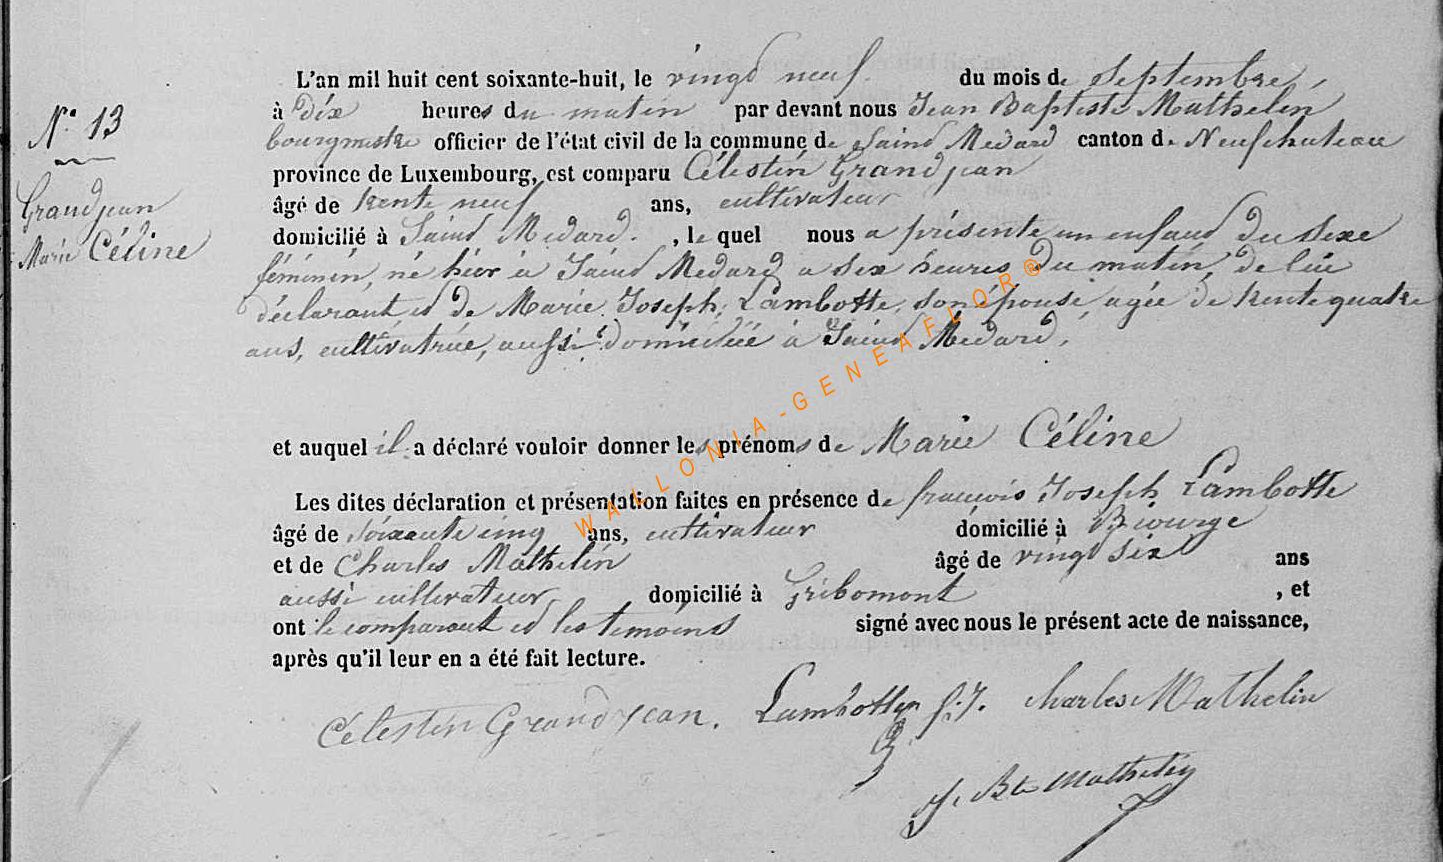 L'an mil huit cent soixante-huit, le vingt neuf du mois de Septembre,
à dix heures du matin par devant nous Jean Baptiste Mathelin
N° 13
bourgmestre officier de l'état civil de la commune de Saint Medard canton de Neufchateau
province de Luxembourg, est comparu Célestin Grandjean
Grandjean
âgé de trente neuf ans, cultivateur
Marie Céline
domicilié à Saint Medard. , lequel nous a présenté un enfant du sexe
féminin, né hier à Saint Medard a six heures du matin, de lui
déclarant et de Marie Joseph Lambotte, son épouse, agée de trente quatre
ans, cultivatrice, aussi domiciliée à Saint Médard,
et auquel il a déclaré vouloir donner les prénoms de Marie Céline
Les dites déclaration et présentation faites en présence de francois Joseph Lambotte
âgé de soixante cinq ans, cultivateur domicilié à Biourge
et de Charles Mathelin âgé de vingt six ans
aussi cultivateur domicilié à Gribomont , et
ont le comparant et les temoins signé avec nous le présent acte de naissance,
après qu'il leur en a été fait lecture.
Celestin Grandjean. Lambotte f. J. Charles Mathelin
J. Bte Mathelin
WALLONIA-GENEAFLOR®